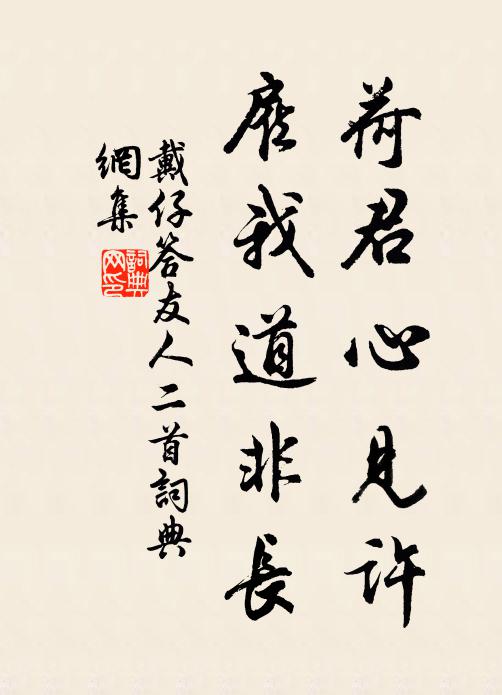 荷君心見許
顧我道非長
戴仔答友人二首詞典
網集
詞典
网印